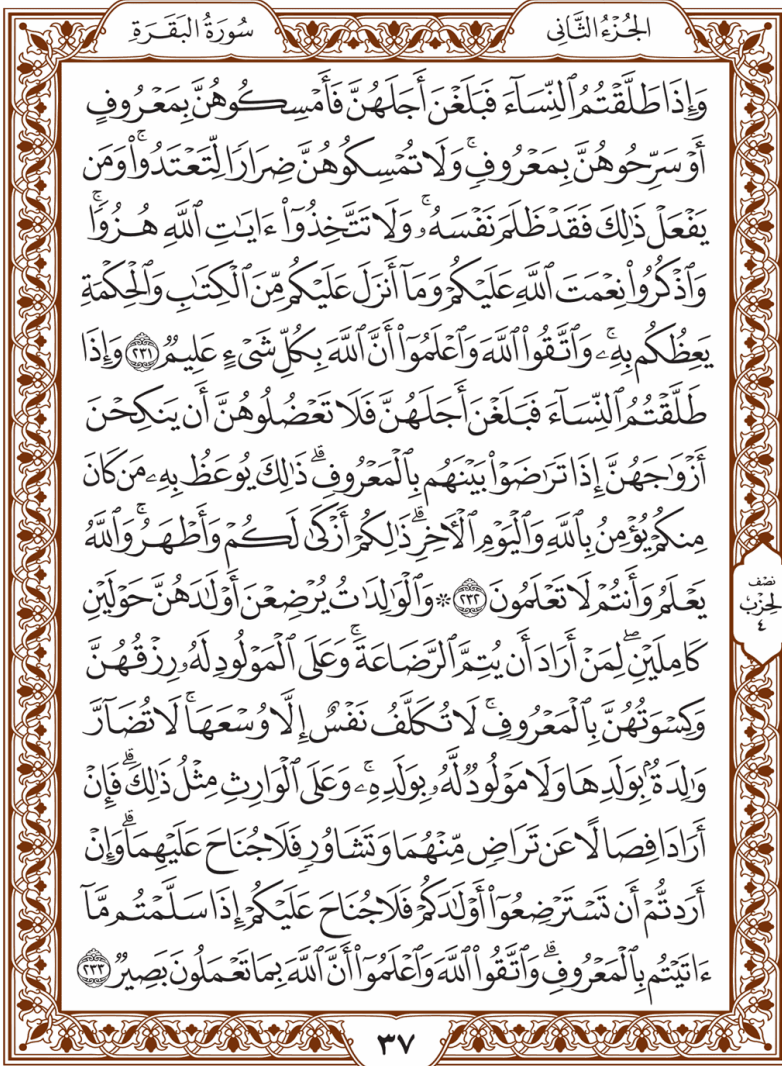 الجُزْءُ الثَّانِى
سُورَةُ البَقَرَةِ
وَإِذَا طَلَّقْتُمُ ٱلنِّسَآءَ فَبَلَغْنَ أَجَلَهُنَّ فَأَمْسِكُوهُنَّ بِمَعْرُوفٍ
أَوْ سَرِّحُوهُنَّ بِمَعْرُوفٍۚ وَلَا تُمْسِكُوهُنَّ ضِرَارًا لِّتَعْتَدُوا۟ۚ وَمَن
يَفْعَلْ ذَٰلِكَ فَقَدْ ظَلَمَ نَفْسَهُۥۚ وَلَا تَتَّخِذُوٓا۟ ءَايَٰتِ ٱللَّهِ هُزُوًاۚ
وَٱذْكُرُوا۟ نِعْمَتَ ٱللَّهِ عَلَيْكُمْ وَمَآ أَنزَلَ عَلَيْكُم مِّنَ ٱلْكِتَٰبِ وَٱلْحِكْمَةِ
يَعِظُكُم بِهِۦۚ وَٱتَّقُوا۟ ٱللَّهَ وَٱعْلَمُوٓا۟ أَنَّ ٱللَّهَ بِكُلِّ شَىْءٍ عَلِيمٌ ٢٣١ وَإِذَا
طَلَّقْتُمُ ٱلنِّسَآءَ فَبَلَغْنَ أَجَلَهُنَّ فَلَا تَعْضُلُوهُنَّ أَن يَنكِحْنَ
أَزْوَٰجَهُنَّ إِذَا تَرَٰضَوْا۟ بَيْنَهُم بِٱلْمَعْرُوفِۗ ذَٰلِكَ يُوعَظُ بِهِۦ مَن كَانَ
مِنكُمْ يُؤْمِنُ بِٱللَّهِ وَٱلْيَوْمِ ٱلْءَاخِرِۗ ذَٰلِكُمْ أَزْكَىٰ لَكُمْ وَأَطْهَرُۚ وَٱللَّهُ
يَعْلَمُ وَأَنتُمْ لَا تَعْلَمُونَ ٢٣٢ * وَٱلْوَٰلِدَٰتُ يُرْضِعْنَ أَوْلَٰدَهُنَّ حَوْلَيْنِ
كَامِلَيْنِۖ لِمَنْ أَرَادَ أَن يُتِمَّ ٱلرَّضَاعَةَۚ وَعَلَى ٱلْمَوْلُودِ لَهُۥ رِزْقُهُنَّ
وَكِسْوَتُهُنَّ بِٱلْمَعْرُوفِۚ لَا تُكَلَّفُ نَفْسٌ إِلَّا وُسْعَهَاۚ لَا تُضَآرَّ
وَٰلِدَةٌۢ بِوَلَدِهَا وَلَا مَوْلُودٌ لَّهُۥ بِوَلَدِهِۦۚ وَعَلَى ٱلْوَارِثِ مِثْلُ ذَٰلِكَۗ فَإِنْ
أَرَادَا فِصَالًا عَن تَرَاضٍ مِّنْهُمَا وَتَشَاوُرٍ فَلَا جُنَاحَ عَلَيْهِمَاۗ وَإِنْ
أَرَدتُّمْ أَن تَسْتَرْضِعُوٓا۟ أَوْلَٰدَكُمْ فَلَا جُنَاحَ عَلَيْكُمْ إِذَا سَلَّمْتُم مَّآ
ءَاتَيْتُم بِٱلْمَعْرُوفِۗ وَٱتَّقُوا۟ ٱللَّهَ وَٱعْلَمُوٓا۟ أَنَّ ٱللَّهَ بِمَا تَعْمَلُونَ بَصِيرٌ ٢٣٣
نِصْف
الحِزْبُ
٤
٣٧